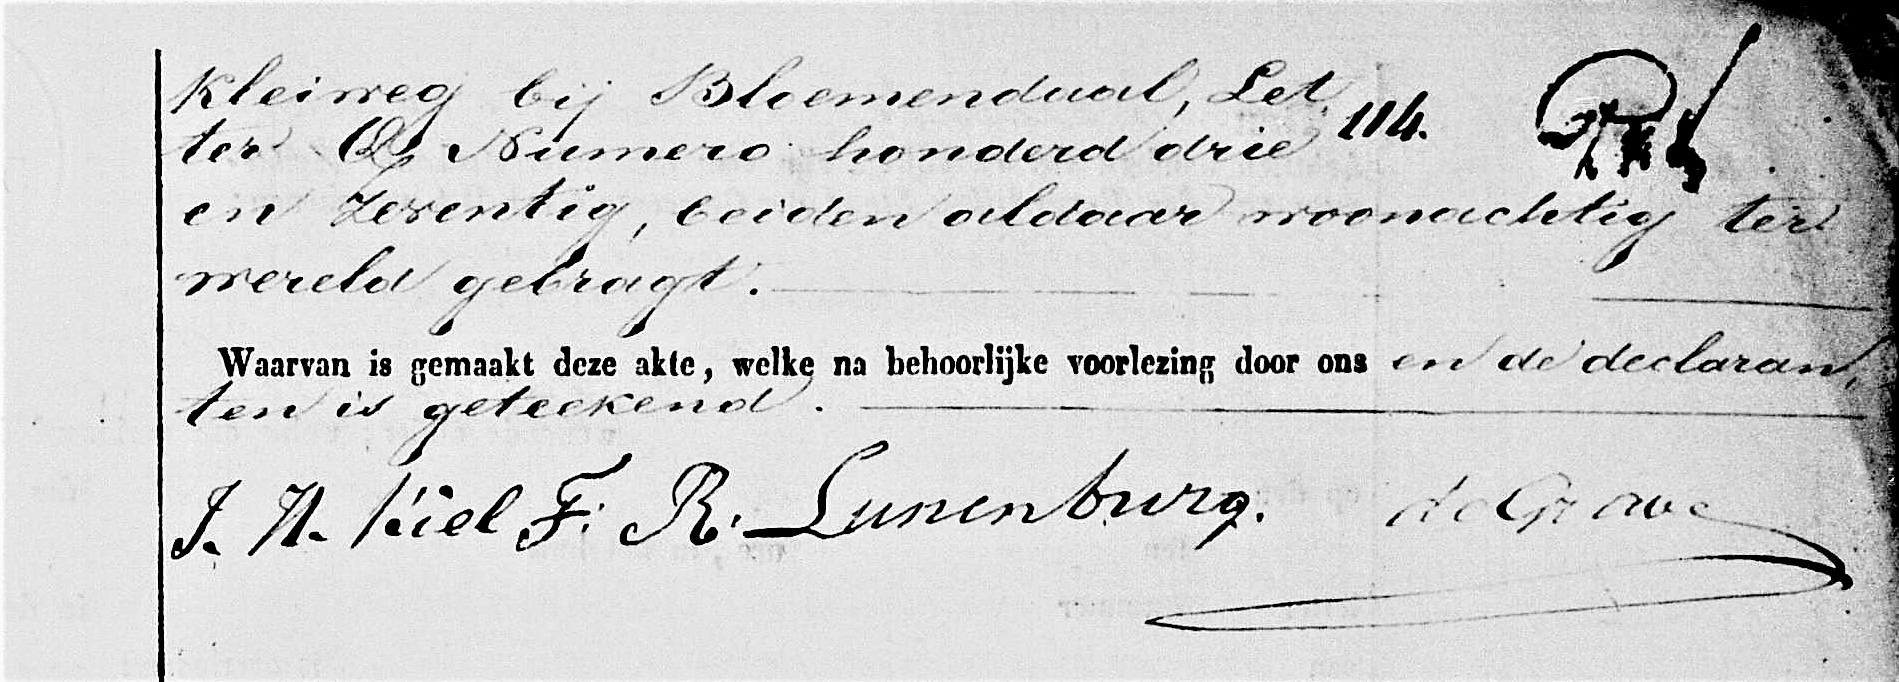 Kleiweg bij Bloemendaal, Let,
ter Q Numero honderd drie
114.
en Zeventig, beiden aldaar woonachtig ter
wereld gebragt.
Waarvan is gemaakt deze akte, welke na behoorlijke voorlezing door ons en de declaran,
ten is geteekend.
J. H. Kiel F. R. Lunenburg. de Grave